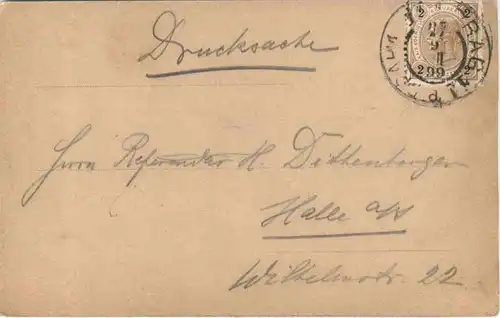 Drucksache
Herrn Referendar H. Dittenberger
Halle a/S
Wilhelmstr. 22